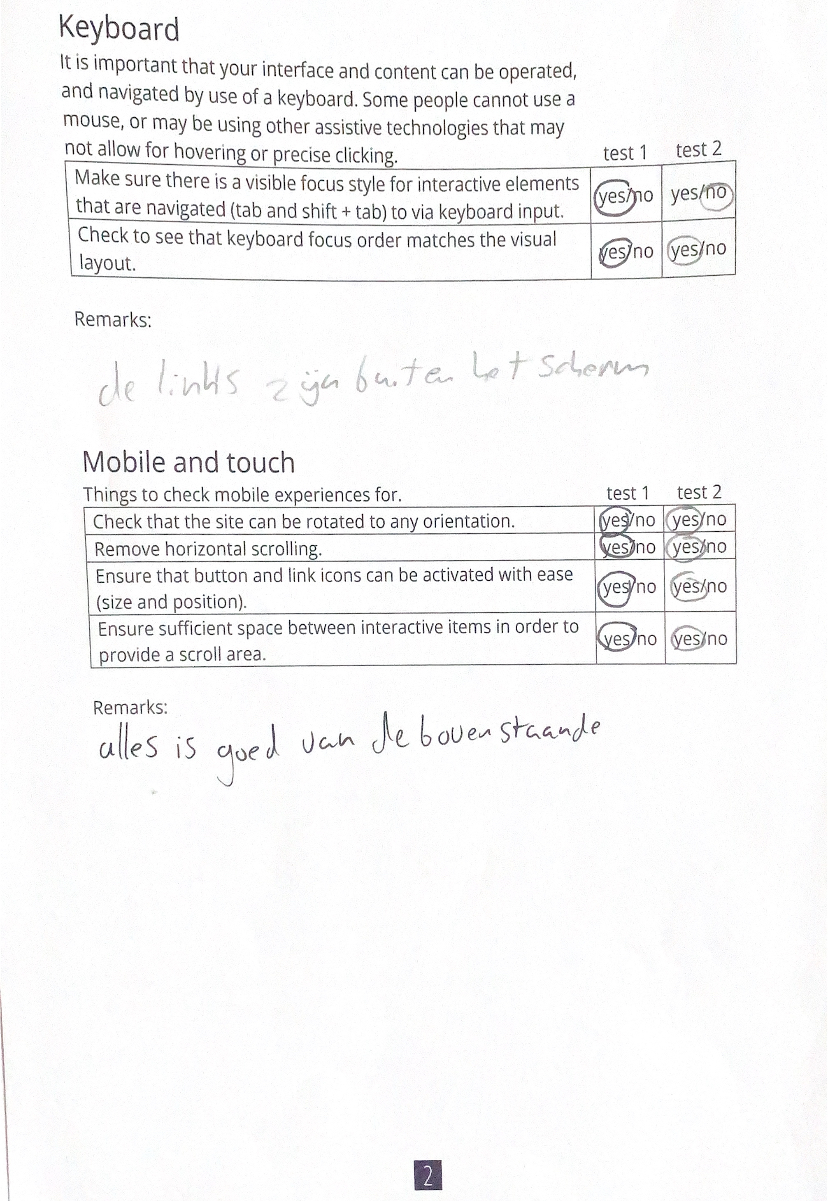 Keyboard
It is important that your interface and content can be operated,
and navigated by use of a keyboard. Some people cannot use a
mouse, or may be using other assistive technologies that may
not allow for hovering or precise clicking. test 1 test 2
Make sure there is a visible focus style for interactive elements
that are navigated (tab and shift + tab) to via keyboard input. yes/no yes/no
Check to see that keyboard focus order matches the visual
layout. yes/no yes/no
Remarks:
de links zijn buiten het scherm
Mobile and touch
Things to check mobile experiences for. test 1 test 2
Check that the site can be rotated to any orientation. yes/no yes/no
Remove horizontal scrolling. yes/no yes/no
Ensure that button and link icons can be activated with ease
(size and position). yes/no yes/no
Ensure sufficient space between interactive items in order to
provide a scroll area. yes/no yes/no
Remarks:
alles is goed van de bovenstaande
2